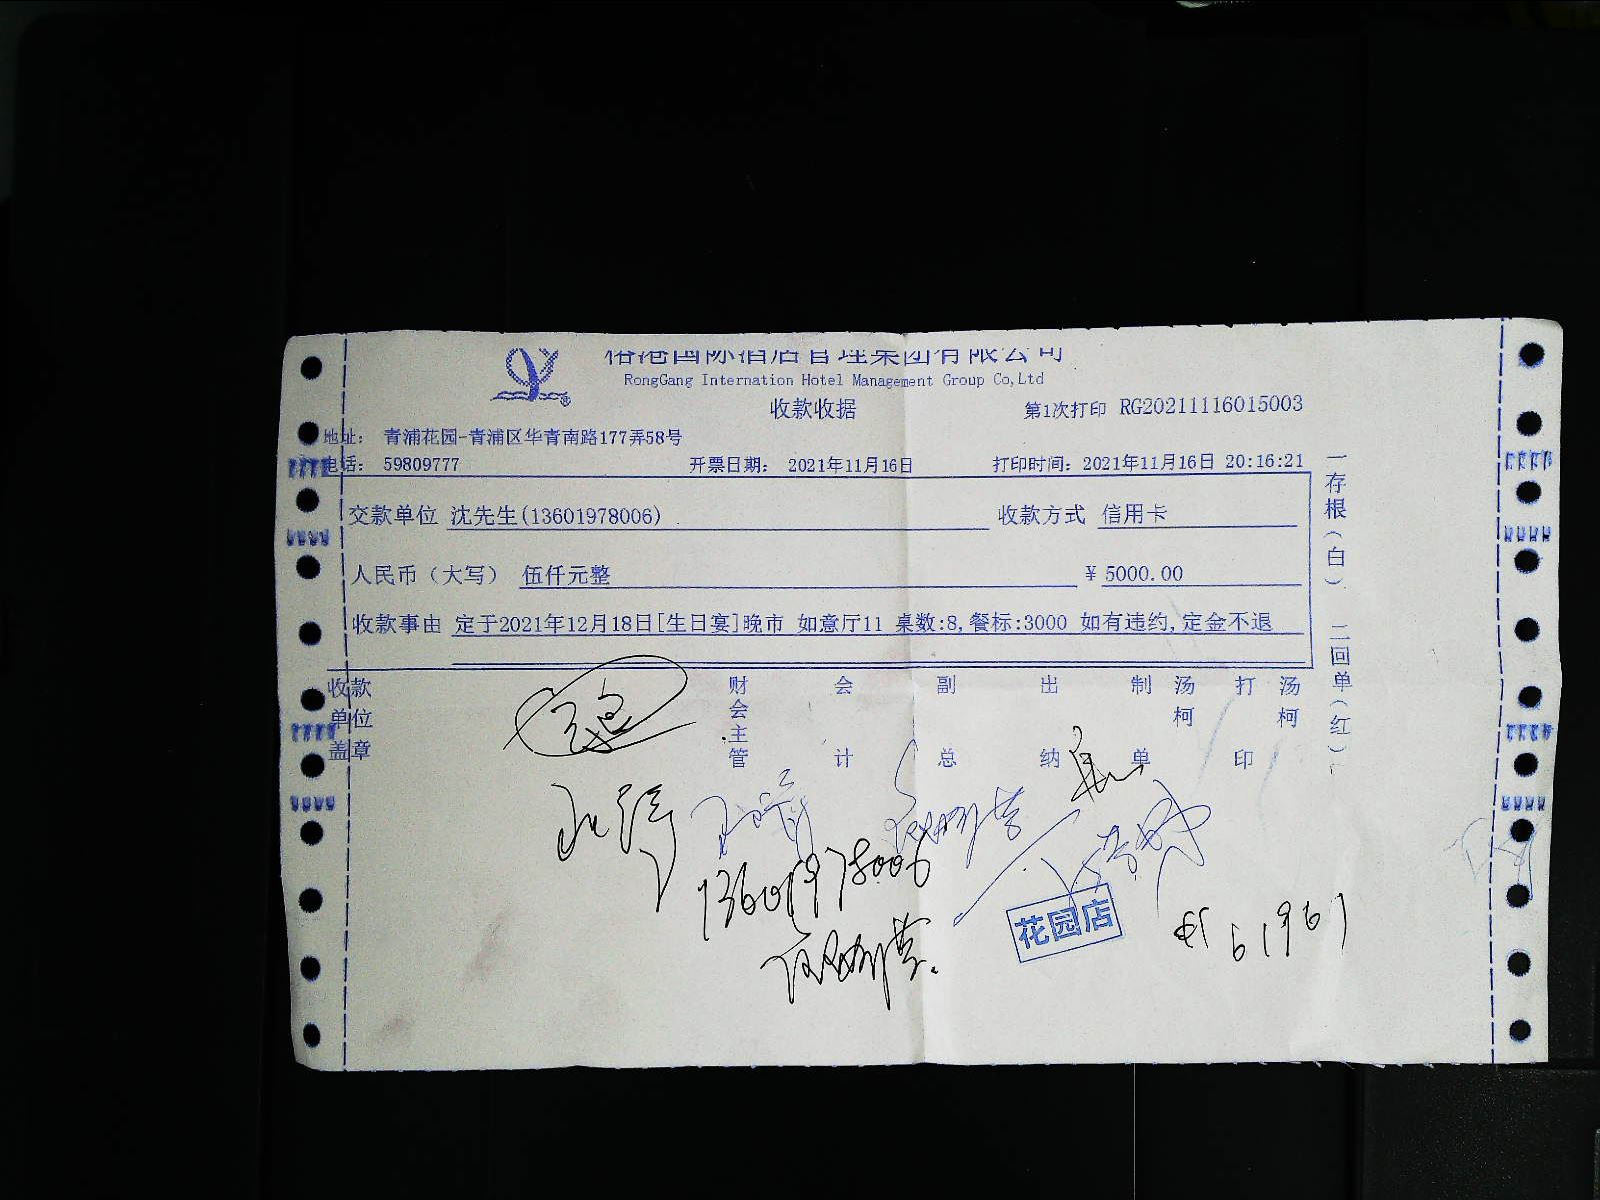 港国际酒店管理集团有限公司
RongGang Internation Hotel Management Group Co,Ltd
收款收据
第1次打印 RG20211116015003
地址： 青浦花园-青浦区华青南路177弄58号
电话： 59809777 开票日期： 2021年11月16日 打印时间：2021年11月16日 20:16:21
交款单位 沈先生(13601978006) 收款方式 信用卡
人民币（大写） 伍仟元整 ¥ 5000.00
收款事由 定于2021年12月18日[生日宴]晚市 如意厅11 桌数:8,餐标:3000 如有违约,定金不退
一存根（白） 二回单（红）
收款单位盖章 财会主管 会计 副总 出纳 制单 汤柯 打印 汤柯
13601978006
花园店
61961